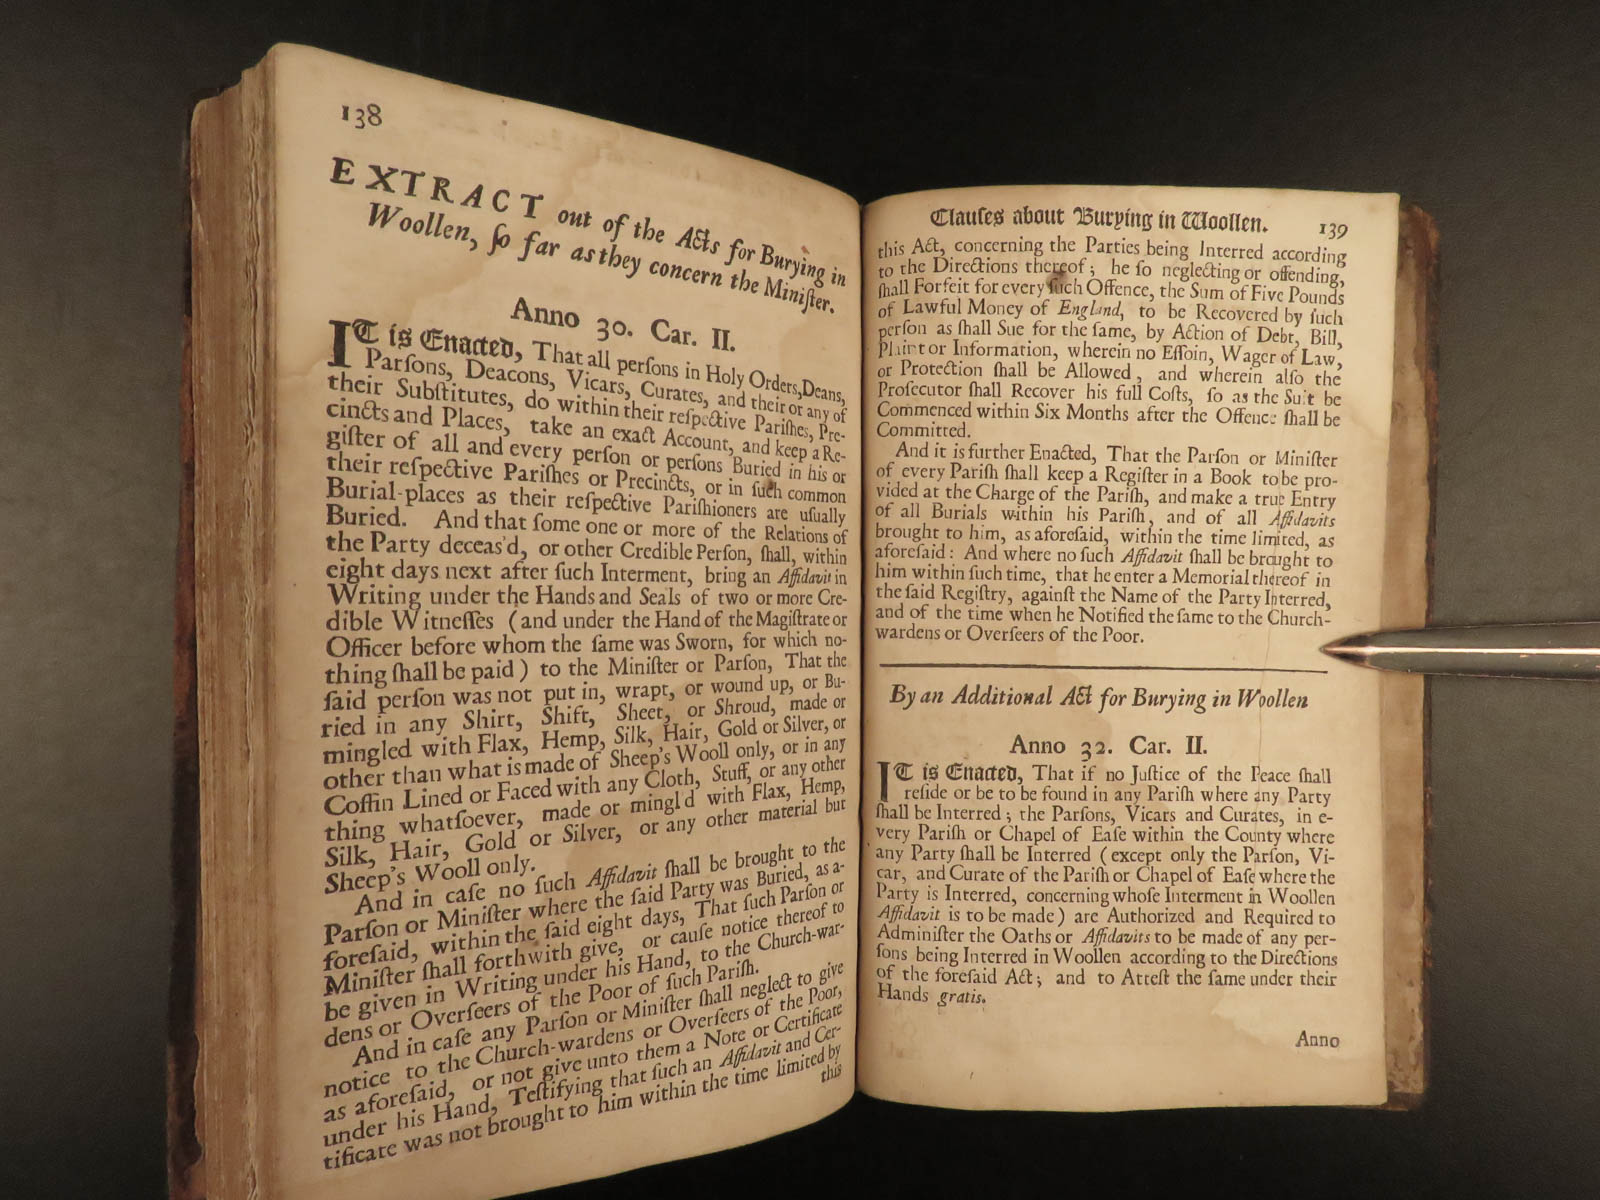 138
EXTRACT out of the Acts for Burying in
Woollen, ſo far as they concern the Miniſter.
Anno 30. Car. II.
IT is Enacted, That all perſons in Holy Orders, Deans,
Parſons, Deacons, Vicars, Curates, and their or any of
their Subſtitutes, do within their reſpective Pariſhes, Pre-
cincts and Places, take an exact Account, and keep a Re-
giſter of all and every perſon or perſons Buried in his or
their reſpective Pariſhes or Precincts, or in ſuch common
Burial-places as their reſpective Pariſhioners are uſually
Buried. And that ſome one or more of the Relations of
the Party deceas'd, or other Credible Perſon, ſhall, within
eight days next after ſuch Interment, bring an Affidavit in
Writing under the Hands and Seals of two or more Cre-
dible Witneſſes (and under the Hand of the Magiſtrate or
Officer before whom the ſame was Sworn, for which no-
thing ſhall be paid) to the Miniſter or Parſon, That the
ſaid perſon was not put in, wrapt, or wound up, or Bu-
ried in any Shirt, Shift, Sheet, or Shroud, made or
mingled with Flax, Hemp, Silk, Hair, Gold or Silver, or
other than what is made of Sheep's Wooll only, or in any
Coffin Lined or Faced with any Cloth, Stuff, or any other
thing whatſoever, made or mingl'd with Flax, Hemp,
Silk, Hair, Gold or Silver, or any other material but
Sheep's Wooll only.
And in caſe no ſuch Affidavit ſhall be brought to the
Parſon or Miniſter where the ſaid Party was Buried, as a-
foreſaid, within the ſaid eight days, That ſuch Parſon or
Miniſter ſhall forthwith give, or cauſe notice thereof to
be given in Writing under his Hand, to the Church-war-
dens or Overſeers of the Poor of ſuch Pariſh.
And in caſe any Parſon or Miniſter ſhall neglect to give
notice to the Church-wardens or Overſeers of the Poor,
as aforeſaid, or not give unto them a Note or Certificate
under his Hand, Teſtifying that ſuch an Affidavit and Cer-
tificate was not brought to him within the time limited by
this
Clauſes about Burying in Woollen. 139
this Act, concerning the Parties being Interred according
to the Directions thereof; he ſo neglecting or offending,
ſhall Forfeit for every ſuch Offence, the Sum of Five Pounds
of Lawful Money of England, to be Recovered by ſuch
perſon as ſhall Sue for the ſame, by Action of Debt, Bill,
Plaint or Information, wherein no Eſſoin, Wager of Law,
or Protection ſhall be Allowed, and wherein alſo the
Proſecutor ſhall Recover his full Coſts, ſo as the Suit be
Commenced within Six Months after the Offence ſhall be
Committed.
And it is further Enacted, That the Parſon or Miniſter
of every Pariſh ſhall keep a Regiſter in a Book to be pro-
vided at the Charge of the Pariſh, and make a true Entry
of all Burials within his Pariſh, and of all Affidavits
brought to him, as aforeſaid, within the time limited, as
aforeſaid: And where no ſuch Affidavit ſhall be brought to
him within ſuch time, that he enter a Memorial thereof in
the ſaid Regiſtry, againſt the Name of the Party Interred,
and of the time when he Notified the ſame to the Church-
wardens or Overſeers of the Poor.
By an Additional Act for Burying in Woollen
Anno 32. Car. II.
IT is Enacted, That if no Juſtice of the Peace ſhall
reſide or be to be found in any Pariſh where any Party
ſhall be Interred; the Parſons, Vicars and Curates, in e-
very Pariſh or Chapel of Eaſe within the County where
any Party ſhall be Interred (except only the Parſon, Vi-
car, and Curate of the Pariſh or Chapel of Eaſe where the
Party is Interred, concerning whoſe Interment in Woollen
Affidavit is to be made) are Authorized and Required to
Adminiſter the Oaths or Affidavits to be made of any per-
ſons being Interred in Woollen according to the Directions
of the foreſaid Act; and to Atteſt the ſame under their
Hands gratis.
Anno